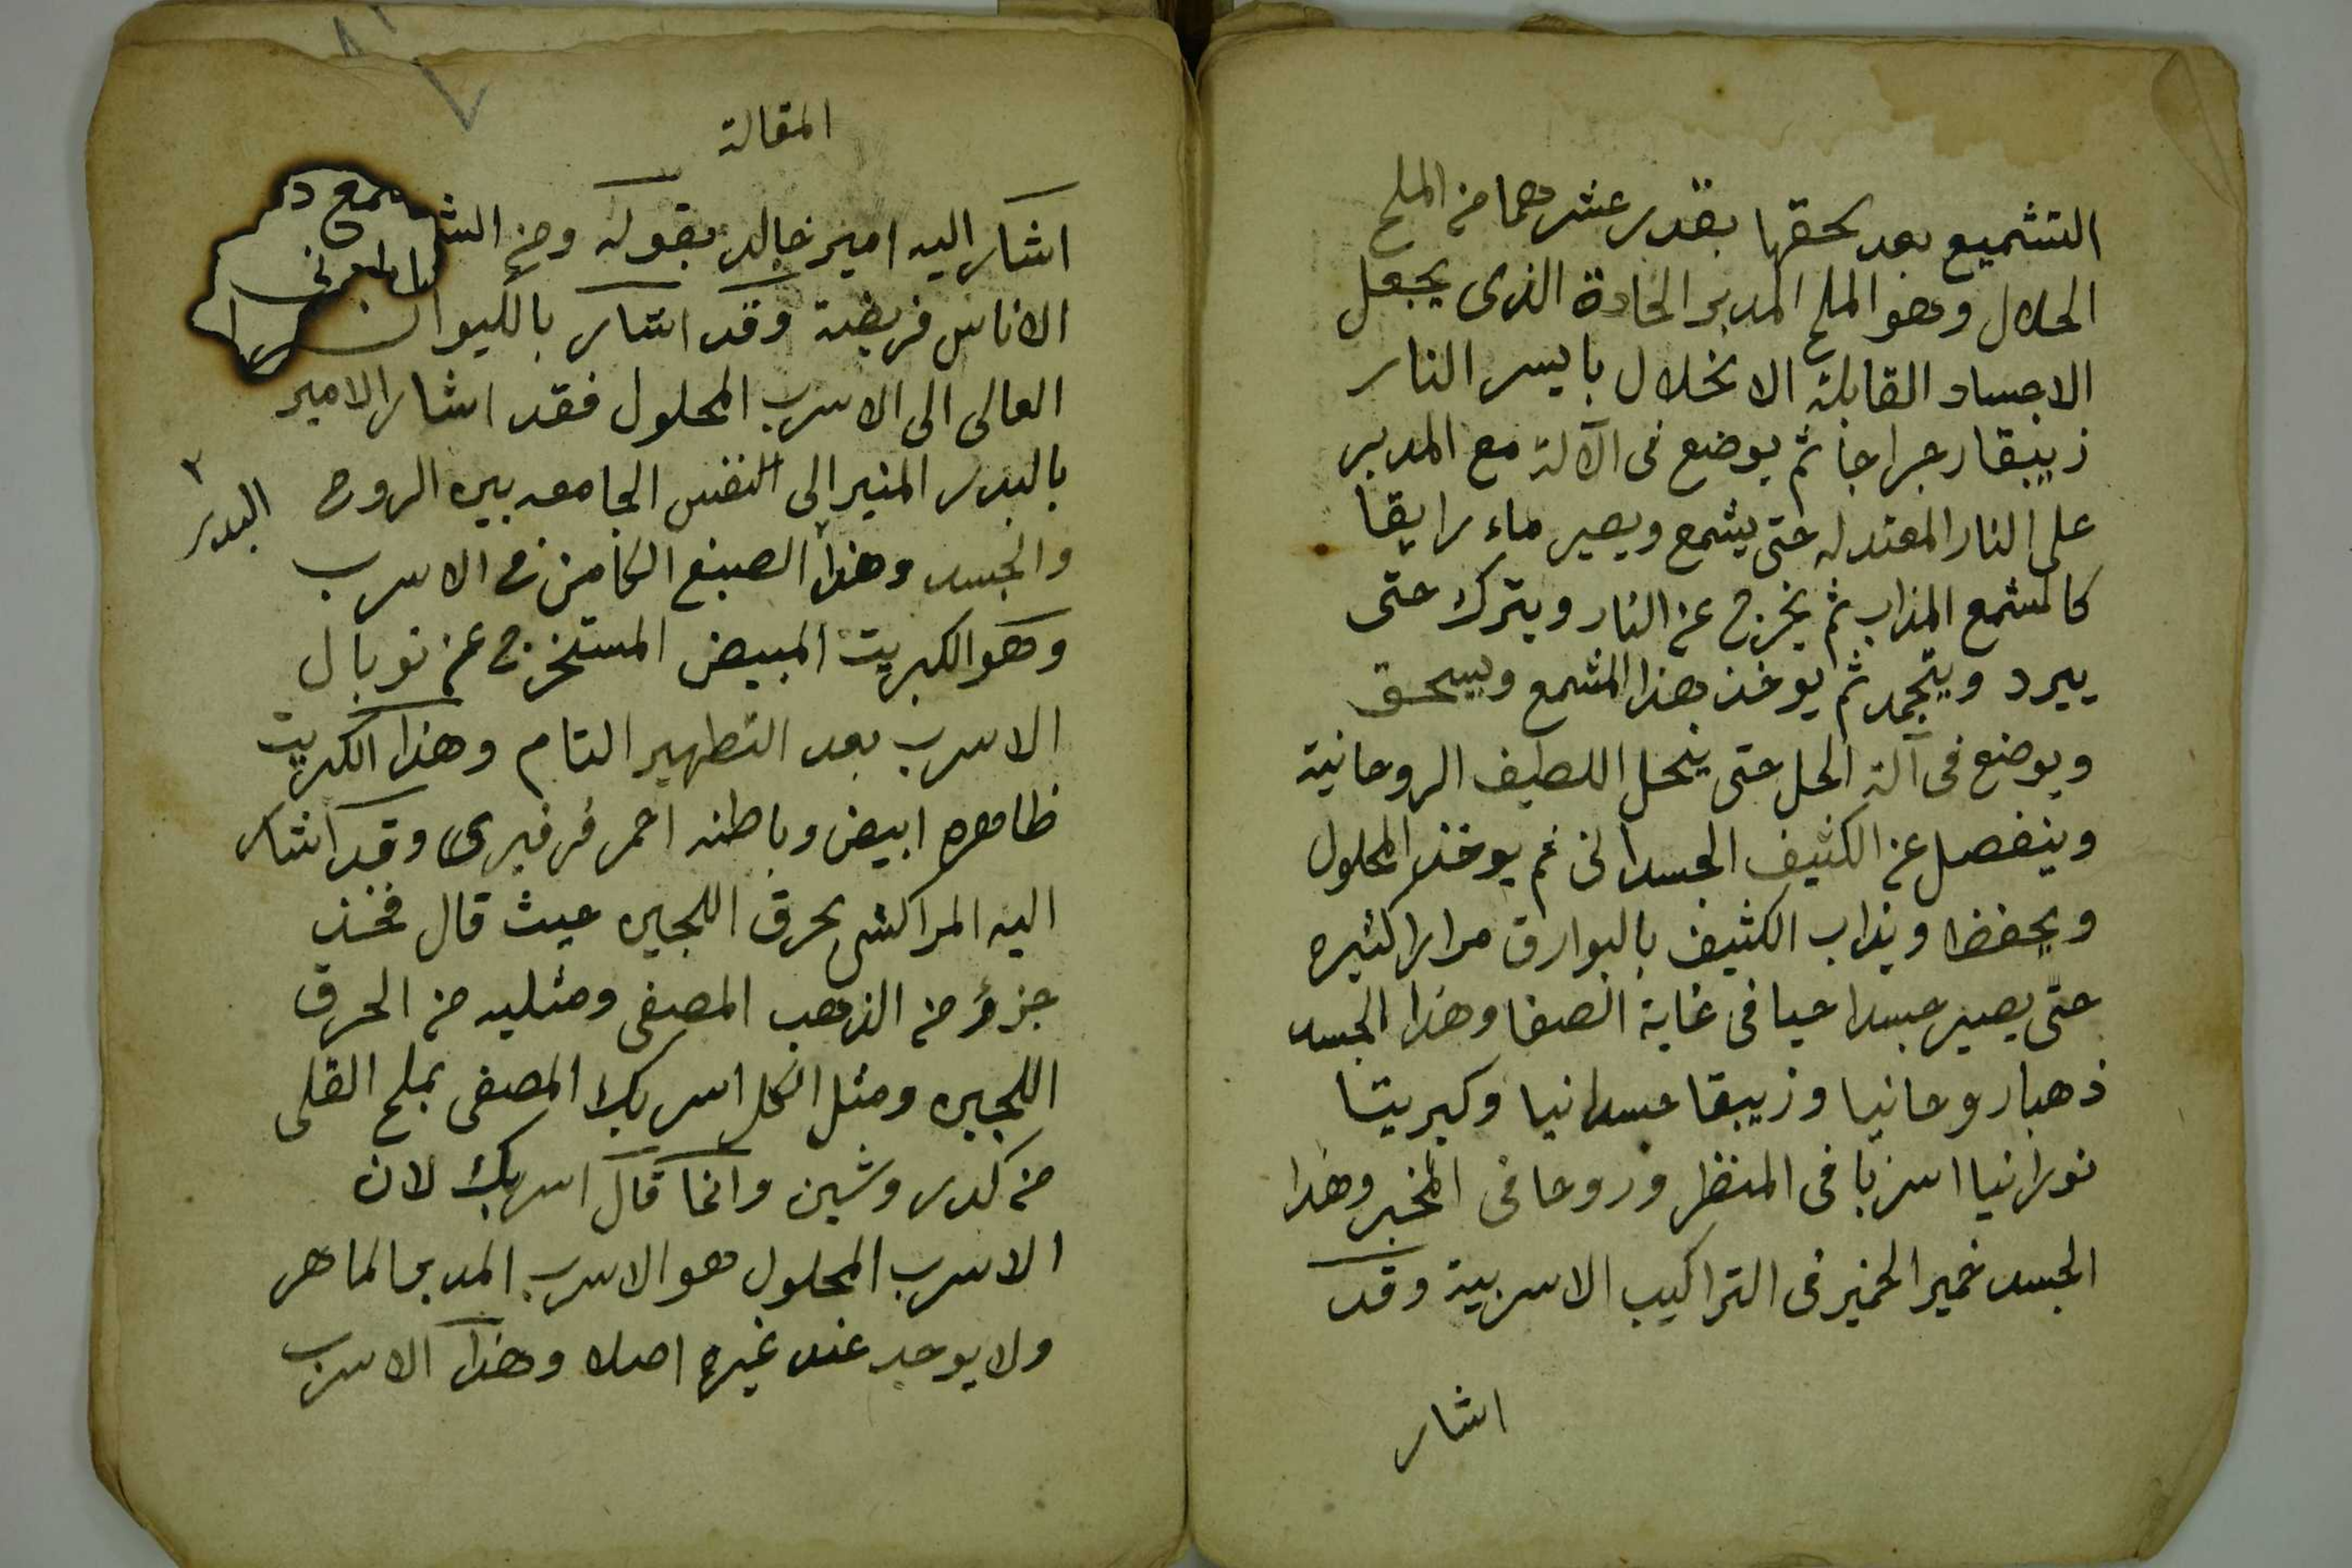 التشميع بعد سحقها بقدر عشرها من الملح
الحلال وهو الملح المدبر الحادة الذى يجعل
الاجساد القابلة الانحلال بايسر النار
زيبقا رجراجا ثم يوضع فى الآلة مع المدبر
على النار المعتدله حتى يشمع ويصير ماء رايقا
كالمشمع المذاب ثم يخرج عن النار ويترك حتى
يبرد ويتجمد ثم يوخذ هذا المشمع ويسحق
ويوضع فى آلة الحل حتى ينحل اللطيف الروحانية
وينفصل عن الكثيف الجسدانى ثم يوخذ المحلول
ويحفظ ويذاب الكثيف بالبوارق مرارا كثيره
حتى يصير جسدا حيا فى غاية الصفا وهذا الجسد
ذهبا روحانيا وزيبقا جسدانيا وكبريتا
نورانيا اسربا فى المنظر وروحا فى المخبر وهذا
الجسد خمير الخمير فى التراكيب الاسربية وقد
اشار
المقالة
اشار اليه امير خالد بقوله ومن
الاناس فريضة وقد اشار
العالى الى الاسرب المحلول فقد اشار الامير
بالبدر المنير الى النفس الجامعه بين الروح
البدر
والجسد وهذا الصبغ الكامن فى الاسرب
وهو الكبريت المبيض المستخرج عن توبال
الاسرب بعد التطهير التام وهذا الكبريت
ظاهره ابيض وباطنه احمر فرفيرى وقد اشار
اليه المراكشى بحرق اللجين حيث قال فخذ
جزؤ من الذهب المصفى ومثليه من الحرق
اللجين ومثل الكل اسربك المصفى بملح القلى
من كدر وشين وانما قال اسربك لان
الاسرب المحلول هو الاسرب المدبر الماهر
ولا يوجد عند غيره اصلا وهذا الاسرب